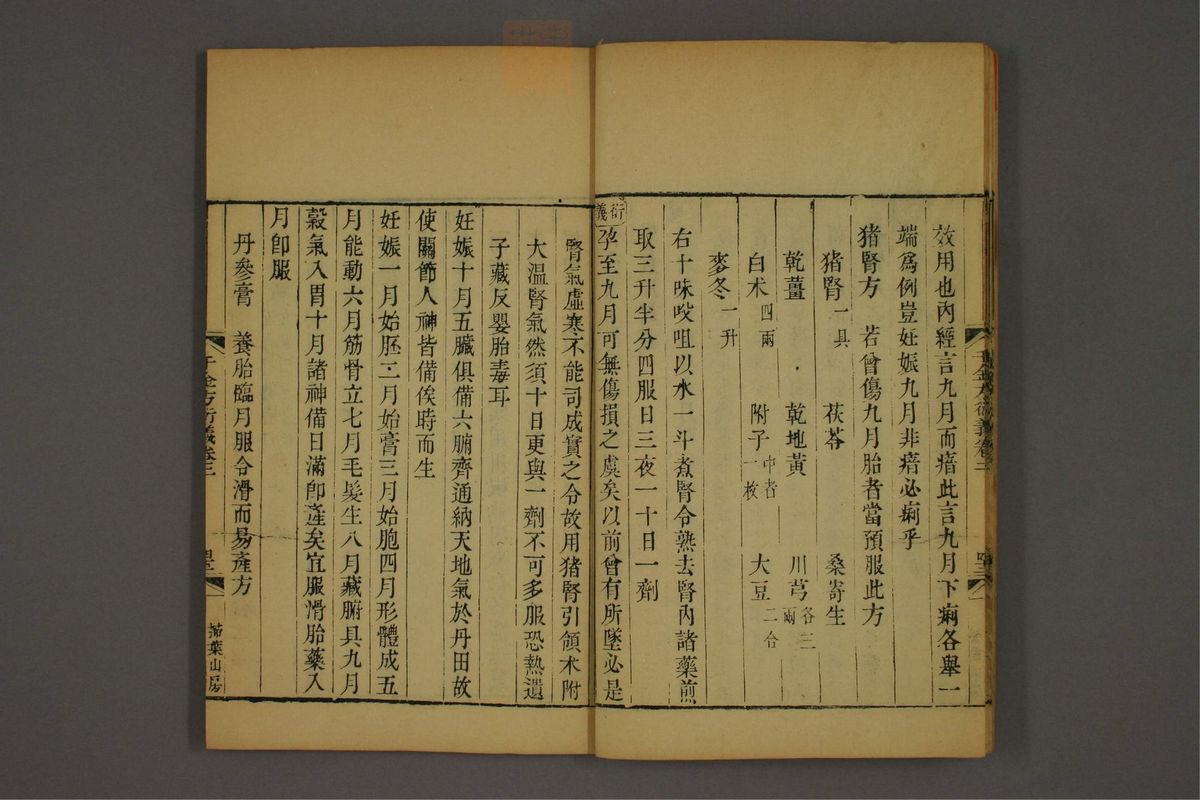 效用也內經言九月而瘖此言九月下痢各舉一
端爲例豈妊娠九月非瘖必痢乎
猪腎方 若曾傷九月胎者當預服此方
猪腎一具 茯苓 桑寄生
乾薑 乾地黃 川芎各三兩
白朮四兩 附子中者一枚 大豆二合
麥冬一升
右十味㕮咀以水一斗煮腎令熟去腎內諸藥煎
取三升半分四服日三夜一十日一劑
衍義孕至九月可無傷損之虞矣以前曾有所墜必是
腎氣虛寒不能司成實之令故用猪腎引領朮附
大溫腎氣然須十日更與一劑不可多服恐熱遺
子藏反嬰胎毒耳
妊娠十月五臟俱備六腑齊通納天地氣於丹田故
使關節人神皆備俟時而生
妊娠一月始胚二月始膏三月始胞四月形體成五
月能動六月筋骨立七月毛髮生八月藏腑具九月
穀氣入胃十月諸神備日滿卽產矣宜服滑胎藥入
月卽服
丹參膏 養胎臨月服令滑而易產方
千金方衍義卷三
掃葉山房